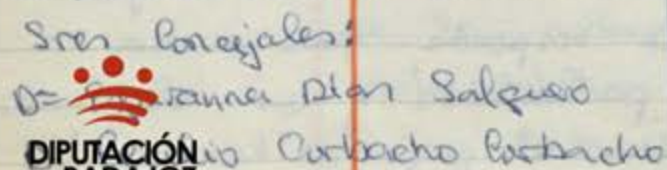 Sres Concejales:
Dª Díaz Salguero
DIPUTACIÓN Corbacho Corbacho